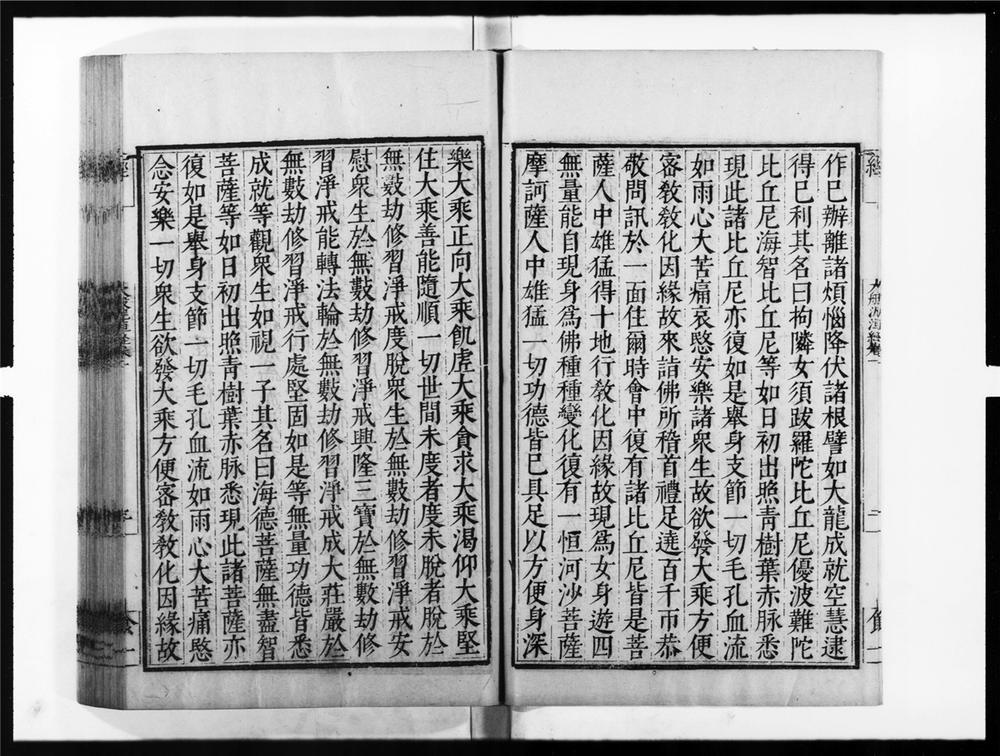 作已辦離諸煩惱降伏諸根譬如大龍成就空慧逮
得已利其名曰拘隣女須跋羅陀比丘尼優波難陀
比丘尼海智比丘尼等如日初出照青樹葉赤脉悉
現此諸比丘尼亦復如是舉身支節一切毛孔血流
如雨心大苦痛哀愍安樂諸衆生故欲發大乘方便
密敎敎化因緣故來詣佛所稽首禮足遶百千帀恭
敬問訊於一面住爾時會中復有諸比丘尼皆是菩
薩人中雄猛得十地行敎化因緣故現爲女身遊四
無量能自現身爲佛種種變化復有一恒河沙菩薩
摩訶薩人中雄猛一切功德皆已具足以方便身深
樂大乘正向大乘飢虗大乘貪求大乘渴仰大乘堅
住大乘善能隨順一切世間未度者度未脫者脫於
無數劫修習淨戒度脫衆生於無數劫修習淨戒安
慰衆生於無數劫修習淨戒興隆三寶於無數劫修
習淨戒能轉法輪於無數劫修習淨戒成大莊嚴於
無數劫修習淨戒行處堅固如是等無量功德皆悉
成就等觀衆生如視一子其名曰海德菩薩無盡智
菩薩等如日初出照青樹葉赤脉悉現此諸菩薩亦
復如是舉身支節一切毛孔血流如雨心大苦痛愍
念安樂一切衆生欲發大乘方便密敎敎化因緣故